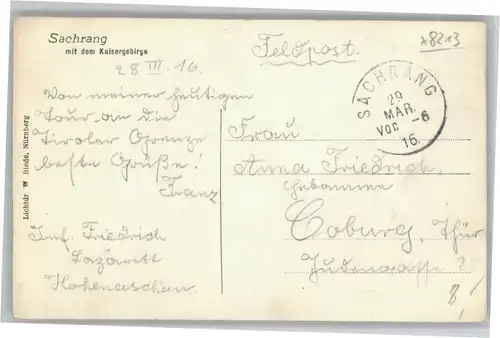 Sachrang
mit dem Kaisergebirge
x8213
Feldpost.
28 III. 16.
Von meiner heutigen
Tour an die
Tiroler Grenze
beste Grüße!
Franz
Inf. Friedrich
Lazarett
Hohenaschau
Lichtdr W Biede, Nürnberg
SACHRANG
29
MAR.
VOR -6
16.
Frau
Anna Friedrich,
Coburg, Thür
Judengasse
8!